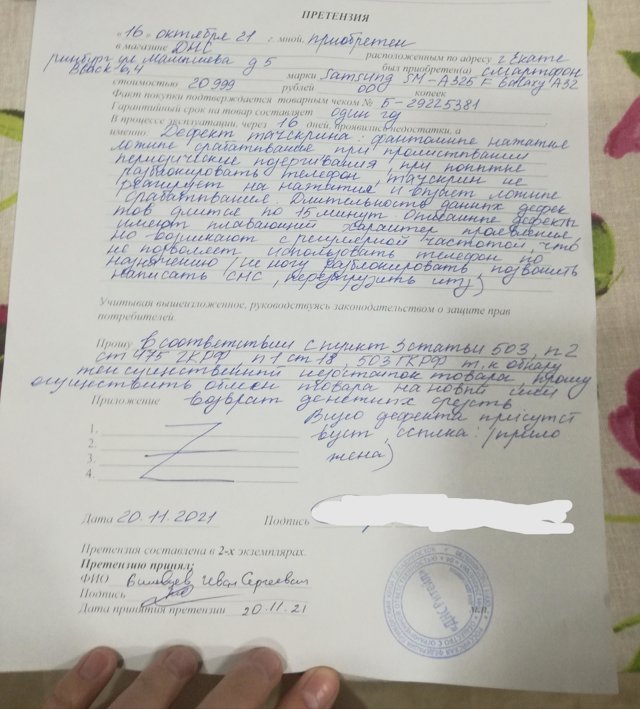 ПРЕТЕНЗИЯ
«16» октября 21 г. мной, приобретен
в магазине ДНС расположенным по адресу г. Екате
ринбург ул. Малышева д 5 был приобретен(а) смартфон
марки Samsung SM-A325F Galaxy A32
стоимостью 20 999 рублей 00 копеек
Факт покупки подтверждается товарным чеком № Б-29225381
Гарантийный срок на товар составляет один год
В процессе эксплуатации, через 16 дней, проявились недостатки, а
именно: Дефект тачскрина: фантомные нажатие
ложные срабатывание при пролистывании
периодические подергивания, при попытке
разблокировать телефон, тачскрин не
реагирует на нажатие и ложные
срабатывание. Длительность данных дефек
тов длится по 15 минут. Описанные дефекты
имеют плавающий характер проявление
но возникают с регулярной частотой, что
не позволяет использовать телефон по
назначению (не могу разблокировать позвонить
написать СМС, перегрузить итд)
Учитывая вышеизложенное, руководствуясь законодательством о защите прав
потребителей.
Прошу в соответствии с пункт 3 статьи 503, п 2
ст 475 ГКРФ, п 1 ст 18, 503 ГКРФ т.к обнару
жен существенный недостаток товара, прошу
осуществить обмен товара на новый или
Приложение возврат денежных средств
Видео дефекта присутст
1.
вует, ссылка: (прило
2.
жена)
3.
4.
Дата 20.11.2021 Подпись
Претензия составлена в 2-х экземплярах.
Претензию принял:
ФИО Иван Сергеевич
Подпись
Дата принятия претензии 20.11.21 М.П.